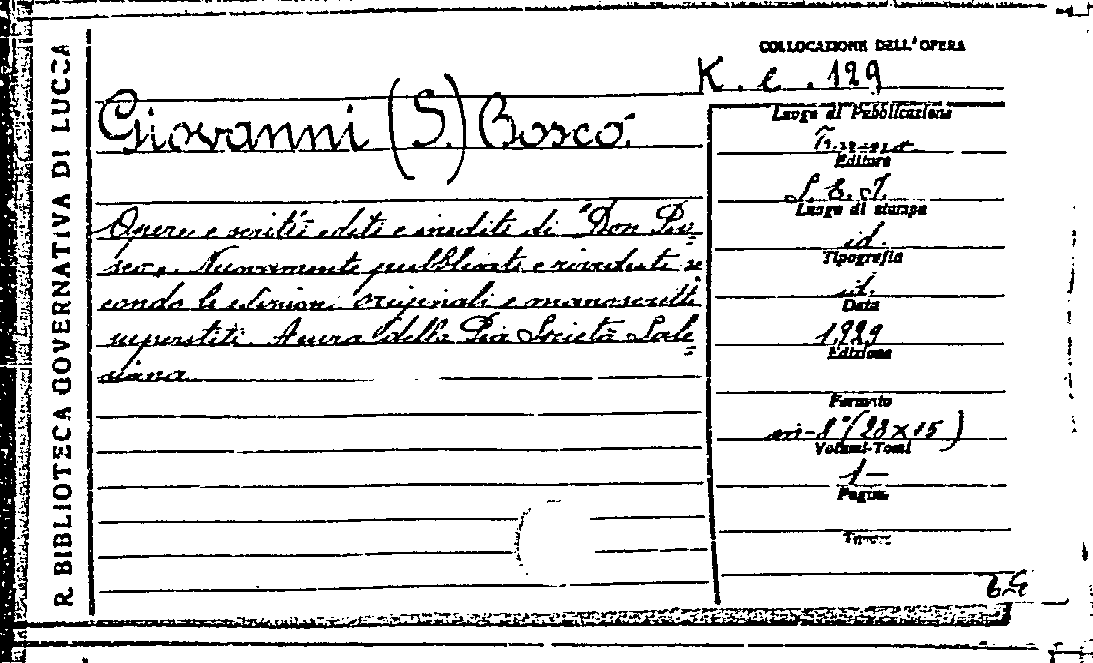 R. BIBLIOTECA GOVERNATIVA DI LUCCA
COLLOCAZIONE DELL'OPERA
K. e. 129
Giovanni (S.) Bosco.
Opere e scritti editi e inediti di "Don Bo=
sco". Nuovamente pubblicati e riveduti se
condo le edizioni originali e manoscritti
superstiti. A cura della Pia Società Sale=
siana
Luogo di Pubblicazione
Torino
Editore
S. E. I.
Luogo di stampa
id.
Tipografia
id.
Data
1929
Edizione
Formato
in-8° (23 x 15)
Volumi-Tomi
1 –
Pagine
Tavole